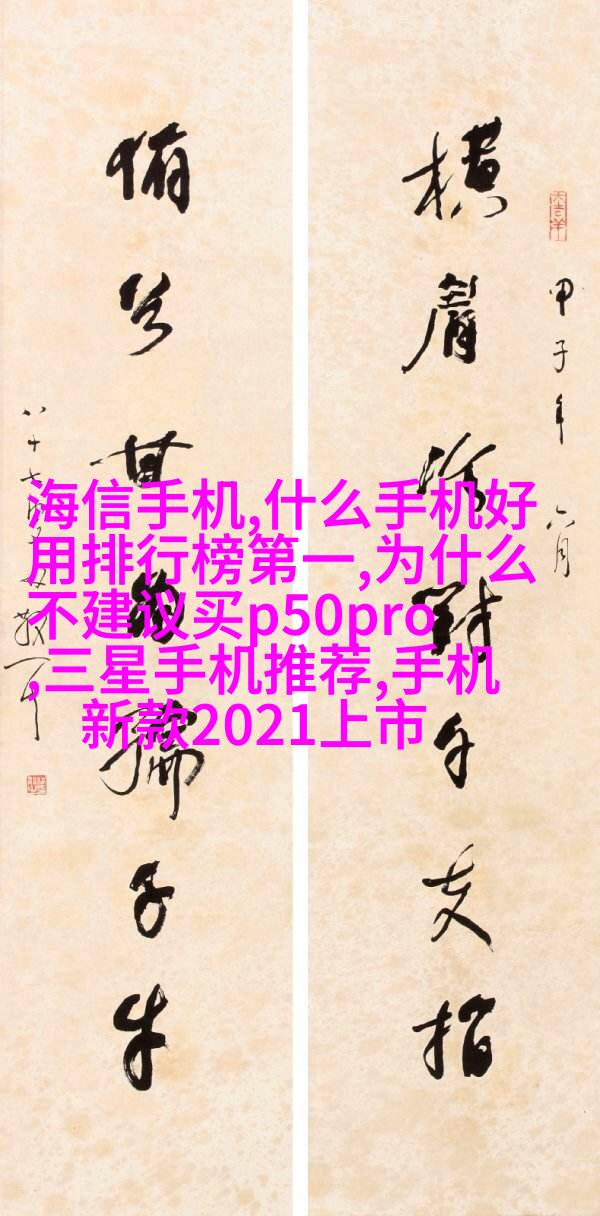 海信手机,什么手机好
用排行榜第一,为什么
不建议买p50pro
,三星手机推荐,手机
新款2021上市
甲子年六月
横眉冷對千夫指
俯首甘為孺子牛
八十七叟林散耳